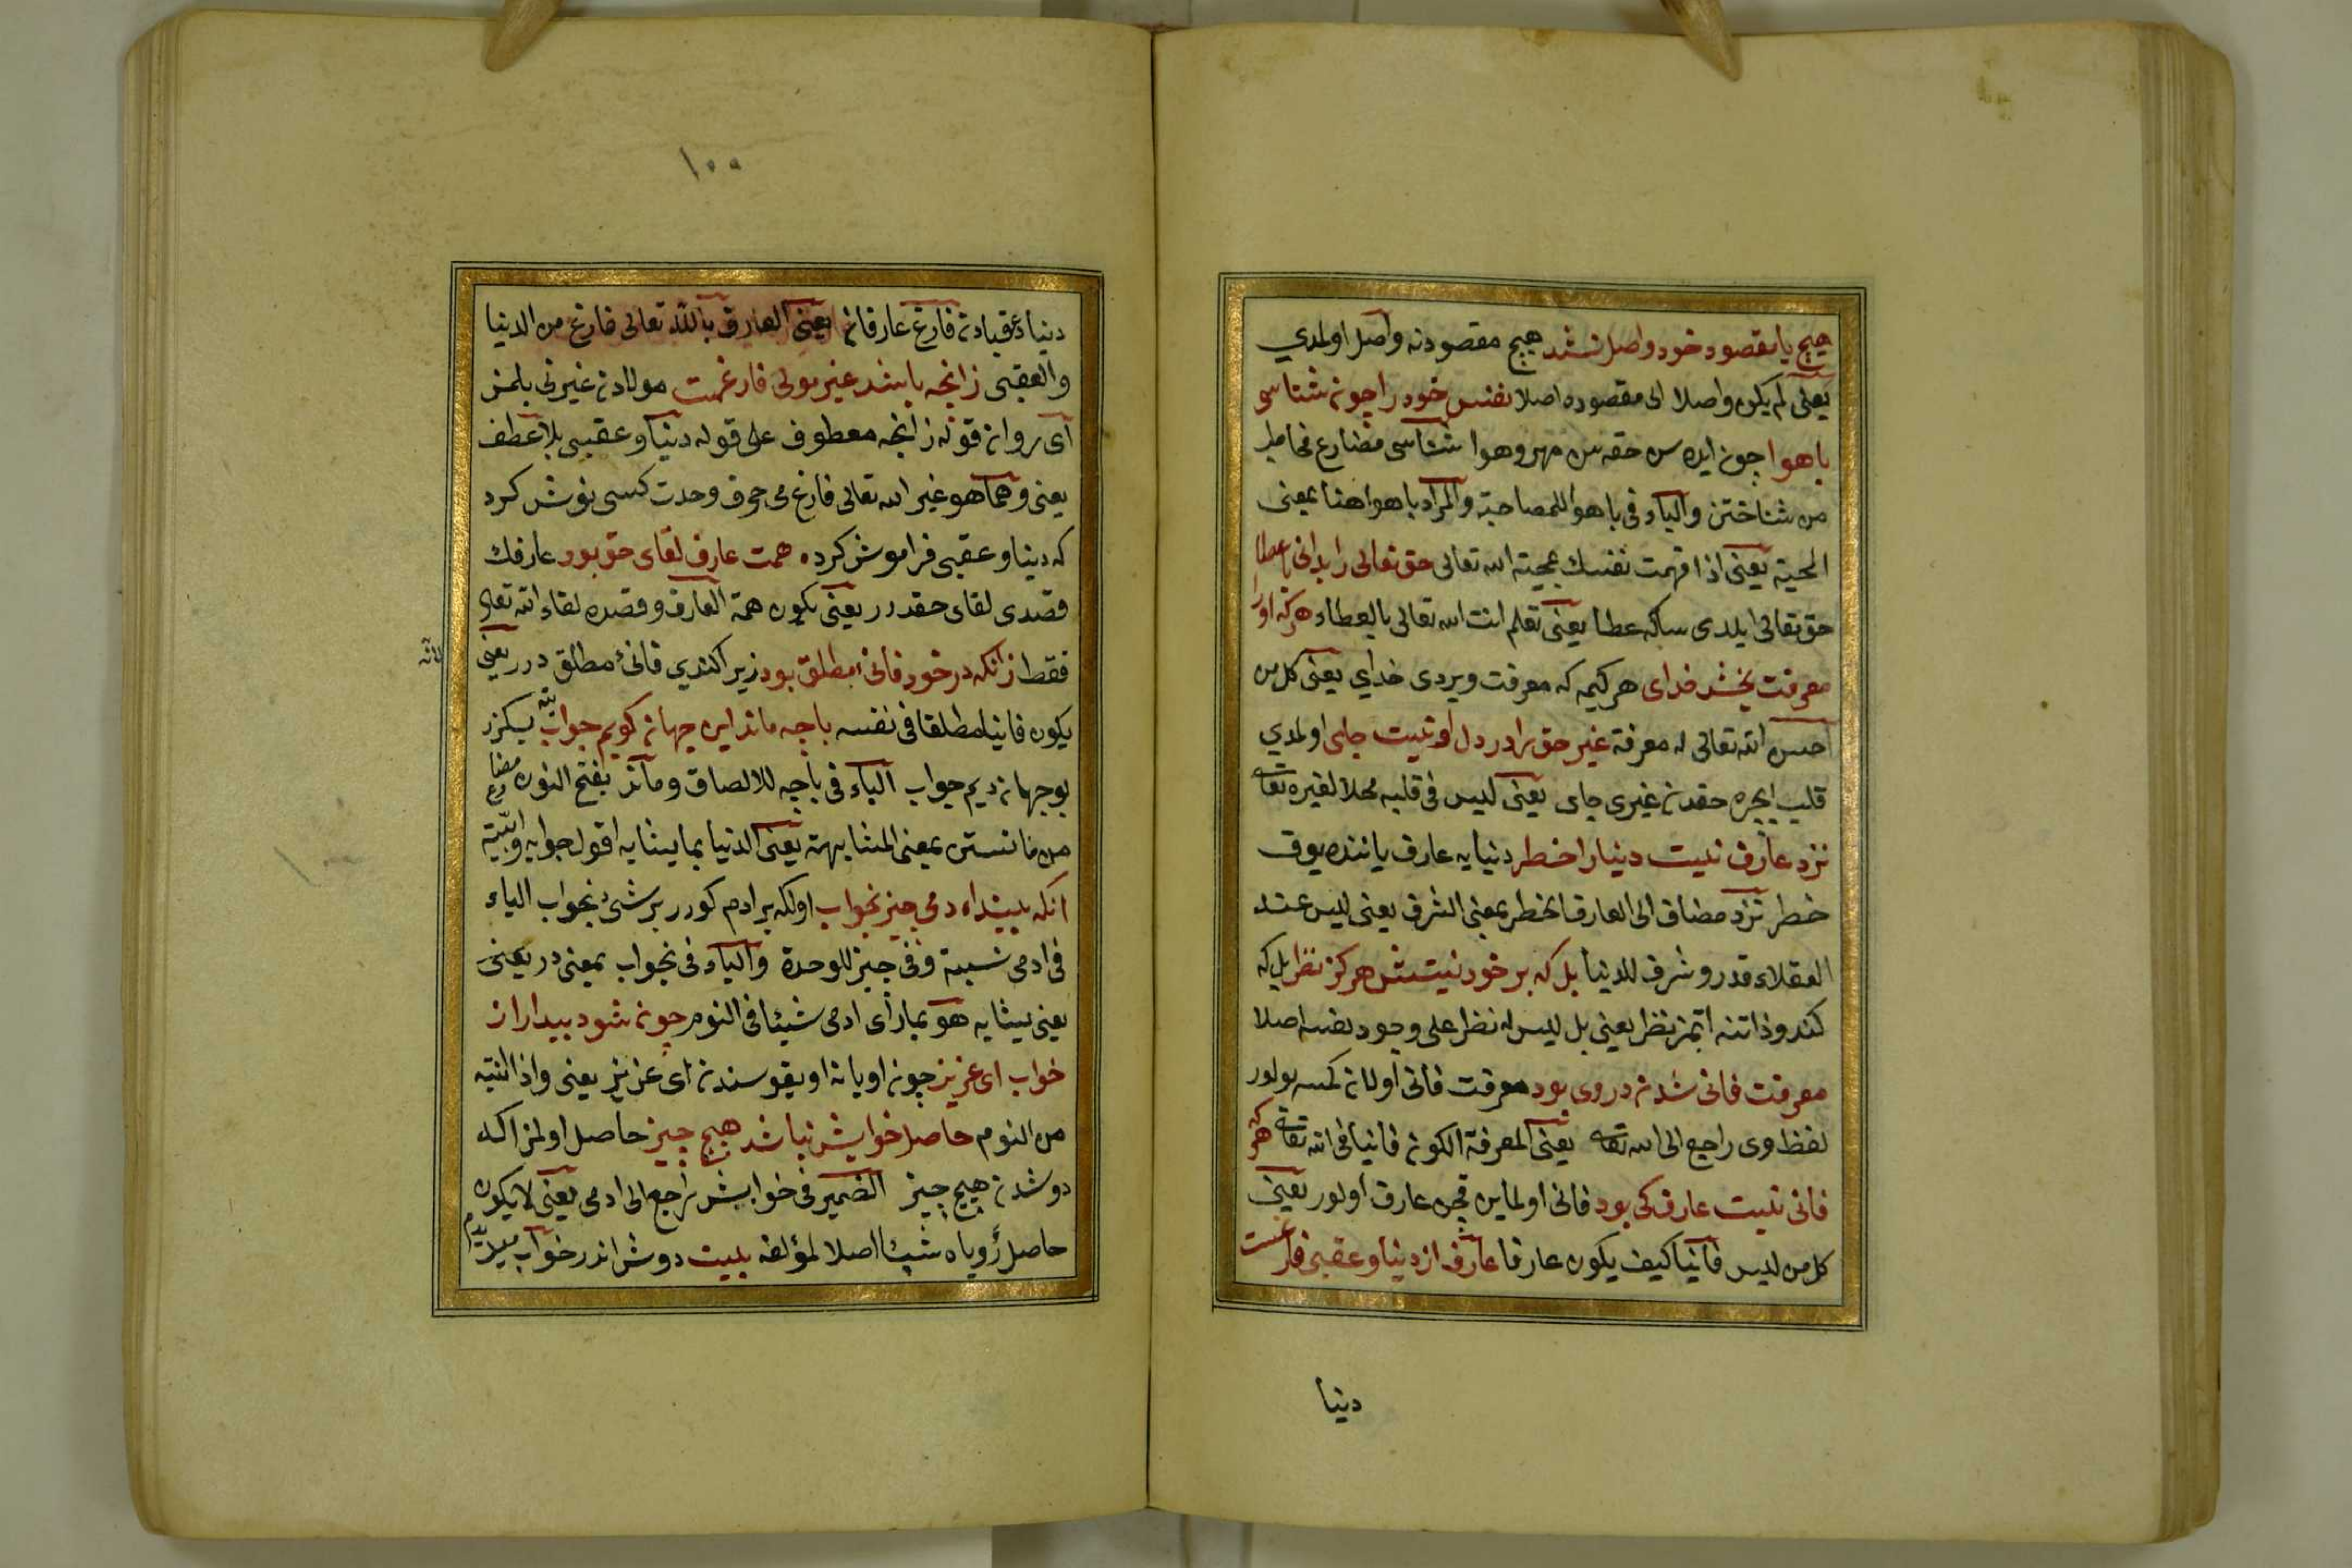 هیچ با مقصود خود واصل نشد هیچ مقصودنه واصل اولمدي
یعنی لم یکن واصلا الی مقصوده اصلا نفس خود را چون شناسی
باهوا چون ایده سن حقه سن مهر و هوا شناسی مضارع مخاطب
من شناختن والباء فی باهوا للمصاحبة والمراد باهوا هنا بمعنی
المحبة یعنی اذا فهمت نفسك بمحبته الله تعالی حق تعالی را بدانی با عطا
حق تعالی ایلدی سأكه عطا یعنی تعلم انت الله تعالی بالعطاء هر که او را
معرفت بخشد خدای هر کیمه که معرفت ویردی خداي یعنی کل من
احسن الله تعالی له معرفة غیر حق را در دل او نیست جای اولمدي
قلب ایچره حقدن غیری جای یعنی لیس فی قلبه محلا لغیره تعالی
نزد عارف نیست دنیا را خطر دنیایه عارف یاننده یوق
خطر نزد مضاف الی العارف الخطر بمعنی الشرف یعنی لیس عند
العقلاء قدر و شرف للدنیا بل که بر خود نیستش هرکز نظر بل که
کندو ذاتنه اتمز نظر یعنی بل لیس له نظر علی وجود نفسه اصلا
معرفت فانی شدن در وی بود معرفت فانی اولان کمسه بولور
لفظ وی راجع الی الله تعالی یعنی المعرفة الکون فانیا فی الله تعالی هر که
فانی نیست عارف کی بود فانی اولماین قچن عارف اولور یعنی
کل من لیس فانیا کیف یکون عارفا عارف از دنیا و عقبی فارغست
دنیا
١٠٠
دنیا و عقبادن فارغ عارفان یعنی العارف بالله تعالی فارغ من الدنیا
والعقبی زانچه باشد غیر مولی فارغست مولادن غیرنی بلمز
ای روان قوله زانچه معطوف علی قوله دنیا و عقبی بلا عطف
یعنی و هما هو غیر الله تعالی فارغ می حوف وحدت کسی نوش کرد
که دنیا و عقبی فراموش کرده همت عارف لقای حق بود عارفك
قصدی لقای حقدر یعنی یکون همة العارف و قصده لقاء الله تعالی
فقط زانکه در خود فانی مطلق بود زیرا کندي فانئ مطلق در یعنی
لانه
یکون فانیا مطلقا فی نفسه با چه ماند این جهان کویم جواب نیه بکزر
بو جهان دیم جواب الباء فی باچه للالصاق و ماند بفتح النون مضارع
من مانستن بمعنی المشابهة یعنی الدنیا بما یشابه اقول جوابه وابینه
انکه بیند ادمی چیز بخواب اولکه بر ادم کورر بر شئ بخواب الیاء
فی ادمی نسبیة وفی چیز للوحدة والباء فی بخواب بمعنی در یعنی
یعنی یشابه هو بما رأی ادمی شیئا فی النوم چون شود بیدار از
خواب ای عزیز چون اویانه اویقوسندن ای عزیز یعنی واذا انتبه
من النوم حاصل خوابش نباشد هیچ چیز حاصل اولمز اکا
دوشدن هیچ چیز الضمیر فی خوابش راجع الی ادمی یعنی لا یکون
حاصل رؤیاه شیئا اصلا لمؤلفه بیت دوش اندر خواب میدیدم